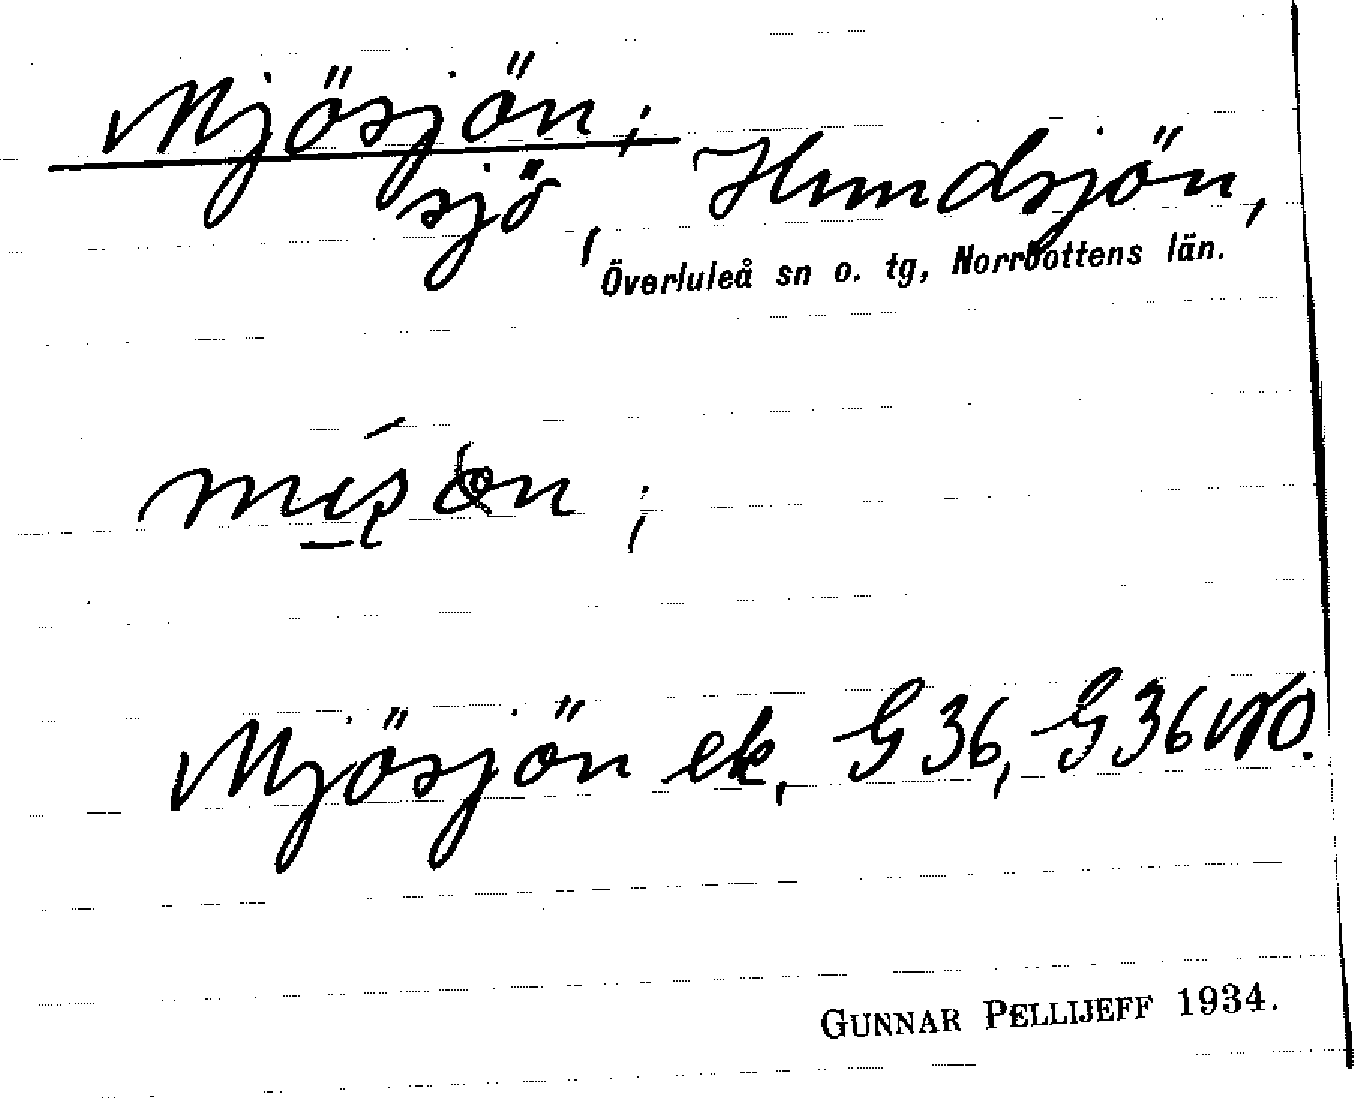 Mjösjön;
sjö, Hundsjön,
Överluleå sn o. tg, Norrbottens län.
Mjösjön ek, G 36, G 36 NO.
GUNNAR PELLIJEFF 1934.